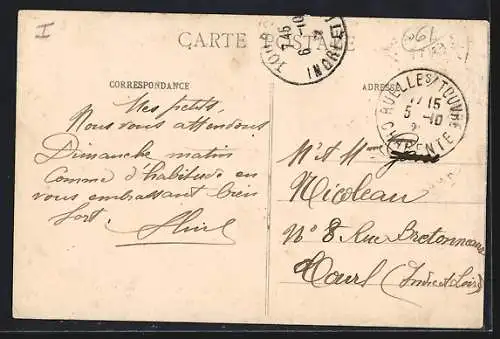 I
CARTE POSTALE
TOURS
7 45
6 -10
INDRE ET L
CORRESPONDANCE
ADRESSE
RUELLES S/TOUVRE
17 15
5 -10
CHARENTE
Mes petits,
Nous vous attendons
Dimanche matin
Comme d'habitude en
vous embrassant bien
fort.
Mr et Mme
Nicoleau
No 8 Rue Bretonneau
Tours (Indre et Loire)